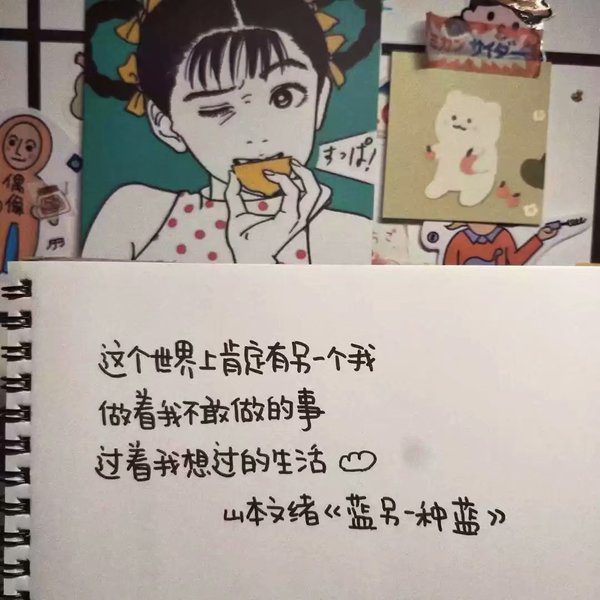 ミカンサイダー
すっぱ!
偶
像
这个世界上肯定有另一个我
做着我不敢做的事
过着我想过的生活
山本文绪《蓝另一种蓝》